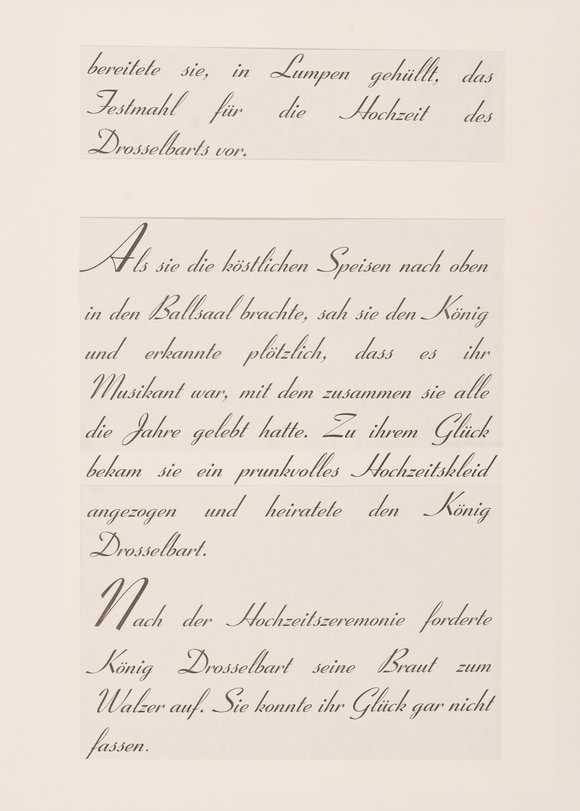 bereitete sie, in Lumpen gehüllt, das
Festmahl für die Hochzeit des
Drosselbarts vor.
Als sie die köstlichen Speisen nach oben
in den Ballsaal brachte, sah sie den König
und erkannte plötzlich, dass es ihr
Musikant war, mit dem zusammen sie alle
die Jahre gelebt hatte. Zu ihrem Glück
bekam sie ein prunkvolles Hochzeitskleid
angezogen und heiratete den König
Drosselbart.
Nach der Hochzeitszeremonie forderte
König Drosselbart seine Braut zum
Walzer auf. Sie konnte ihr Glück gar nicht
fassen.